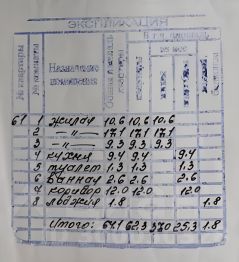 ЭКСПЛИКАЦИЯ
№ квартиры
№ комнаты
Назначение помещения
В т.ч. площадь
61 1 жилая 10.6 10.6 10.6
2 -"- 17.1 17.1 17.1
3 -"- 9.3 9.3 9.3
4 кухня 9.4 9.4 9.4
5 туалет 1.3 1.3 1.3
6 ванная 2.6 2.6 2.6
7 коридор 12.0 12.0 12.0
8 лоджия 1.8 1.8
Итого: 64.1 62.3 37.0 25.3 1.8